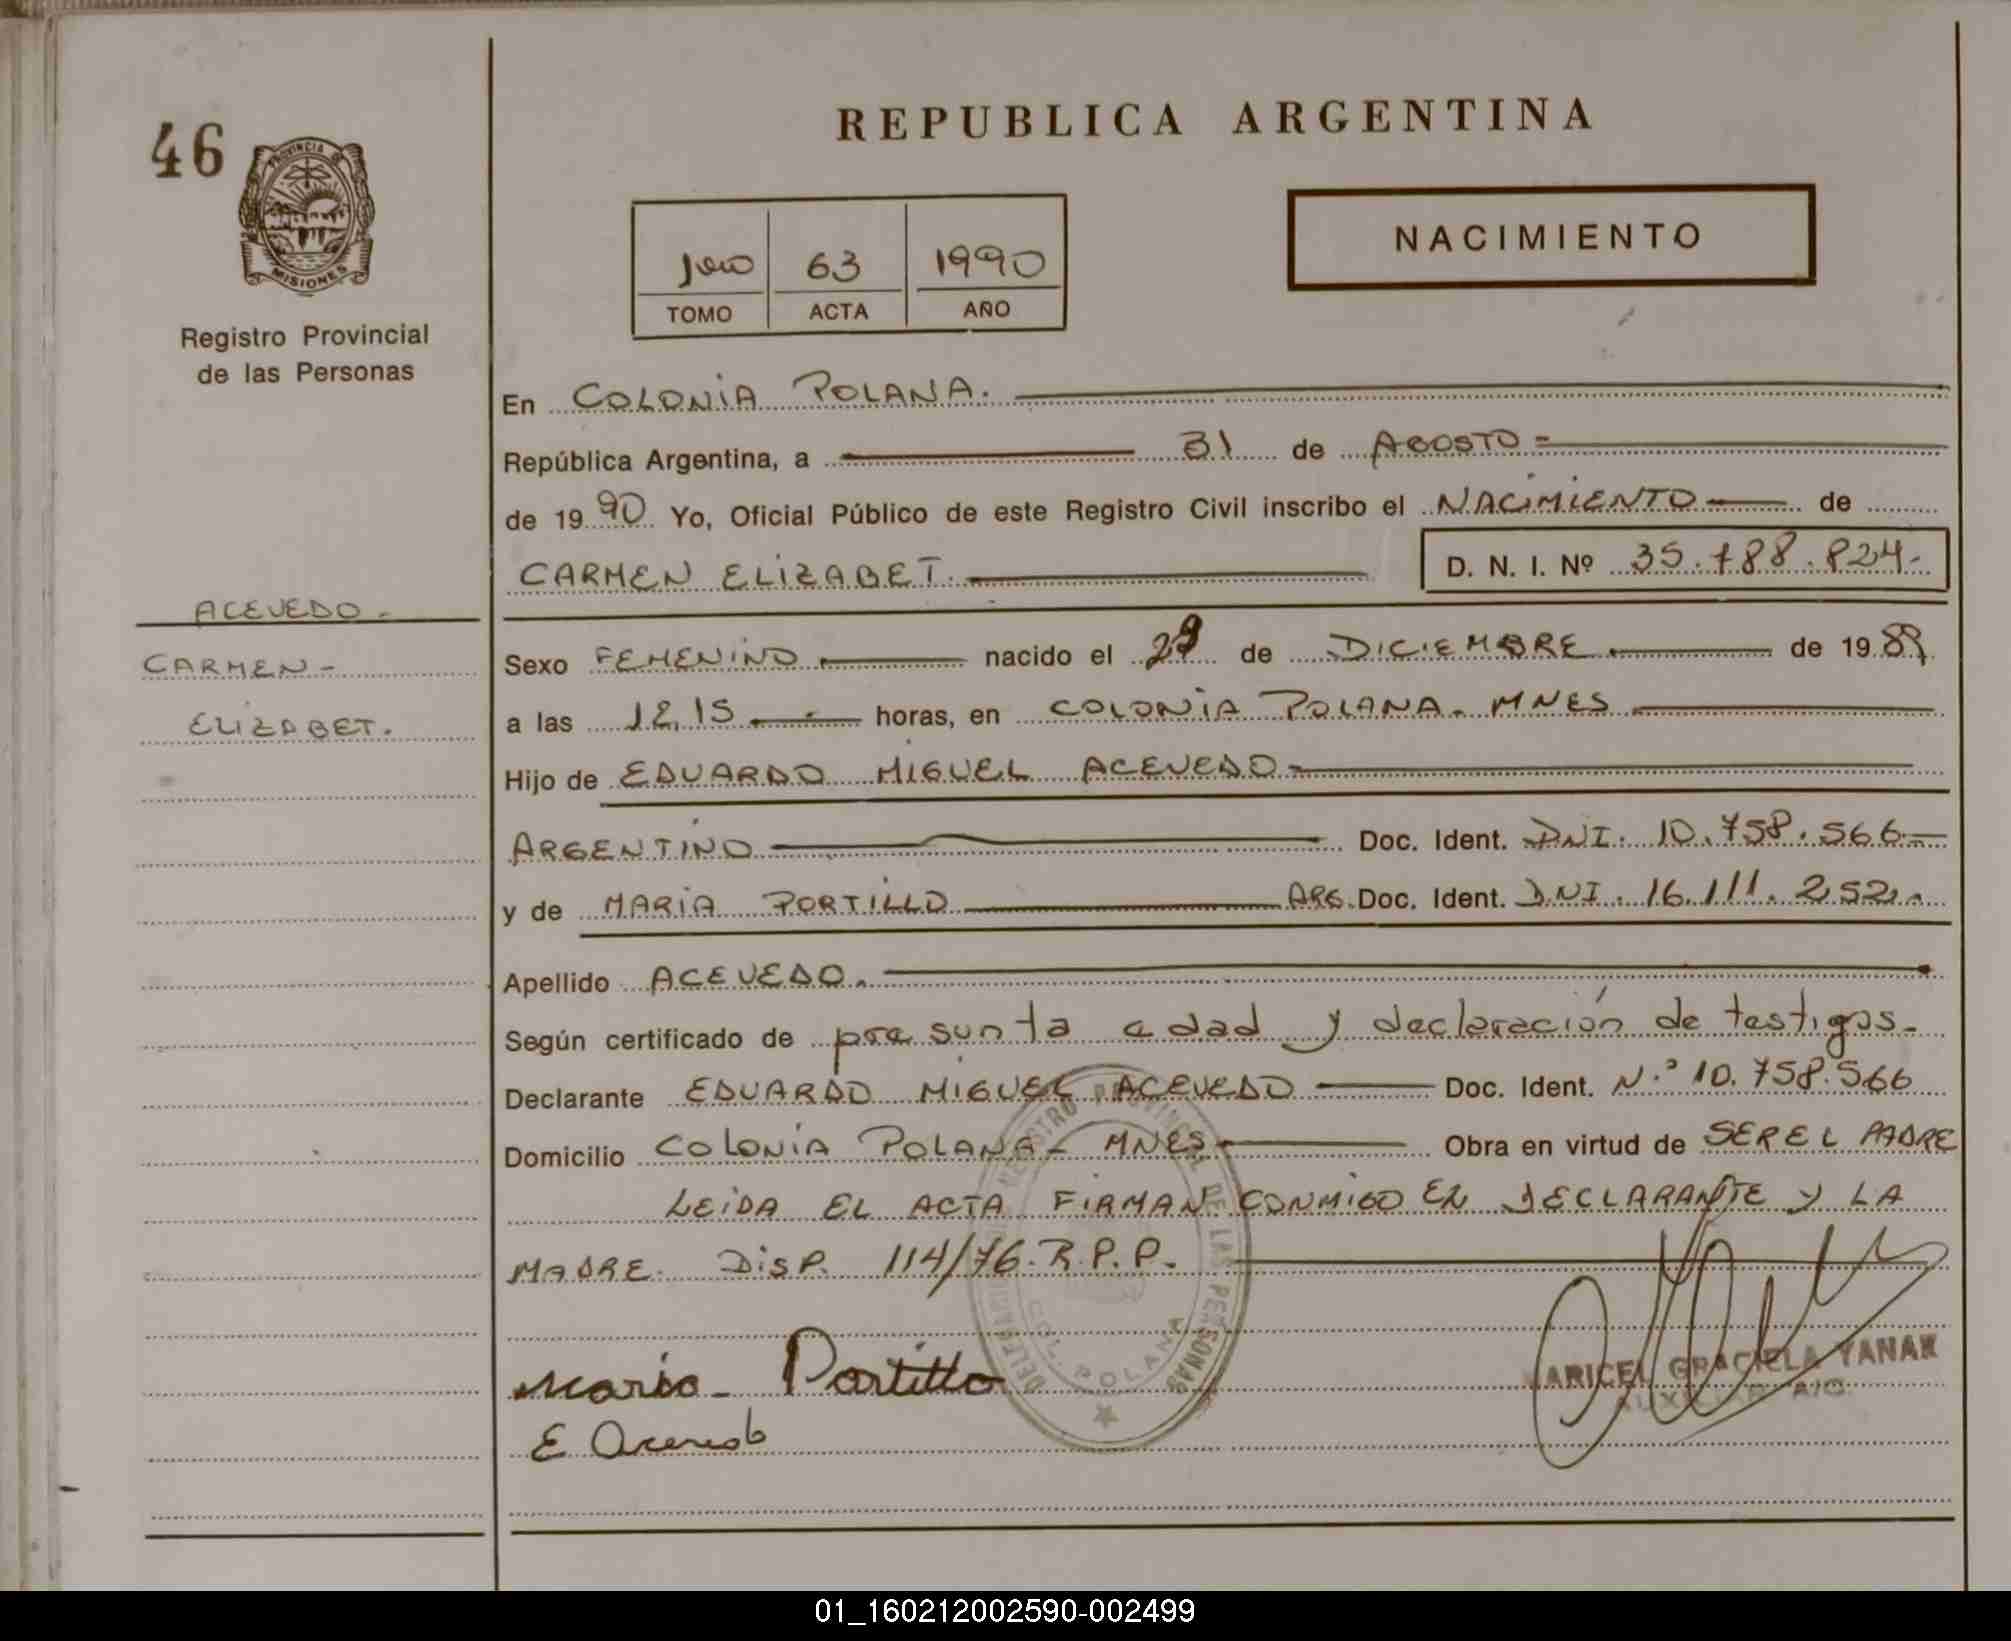 46
PROVINCIA DE
MISIONES
Registro Provincial
de las Personas
ACEVEDO -
CARMEN -
ELIZABET.
REPUBLICA ARGENTINA
NACIMIENTO
63 1990
TOMO ACTA AÑO
En COLONIA POLANA.
República Argentina, a 31 de AGOSTO =
de 19 90 Yo, Oficial Público de este Registro Civil inscribo el NACIMIENTO de
CARMEN ELIZABET. D. N. I. Nº 35.788.824-
Sexo FEMENINO nacido el de DICIEMBRE de 19 89
a las 12,15 horas, en COLONIA POLANA. MNES
Hijo de EDUARDO MIGUEL ACEVEDO
ARGENTINO Doc. Ident. DNI. 10.758.566.-
y de MARIA PORTILLO ARG. Doc. Ident. DNI. 16.111.252.-
Apellido ACEVEDO.
Según certificado de presunta edad y declaración de testigos-
Declarante EDUARDO MIGUEL ACEVEDO Doc. Ident. N.º 10.758.566
Domicilio COLONIA POLANA - MNES Obra en virtud de SER EL PADRE
LEIDA EL ACTA FIRMAN CONMIGO EL DECLARANTE Y LA
MADRE. DISP. 114/76. R.P.P.
DELEGACION REGISTRO PROVINCIAL DE LAS PERSONAS
COL. POLANA
Maria - Portillo
E Acevedo
MARICEL GRACIELA YANAK
AUXILIAR A/C.
01_160212002590-002499